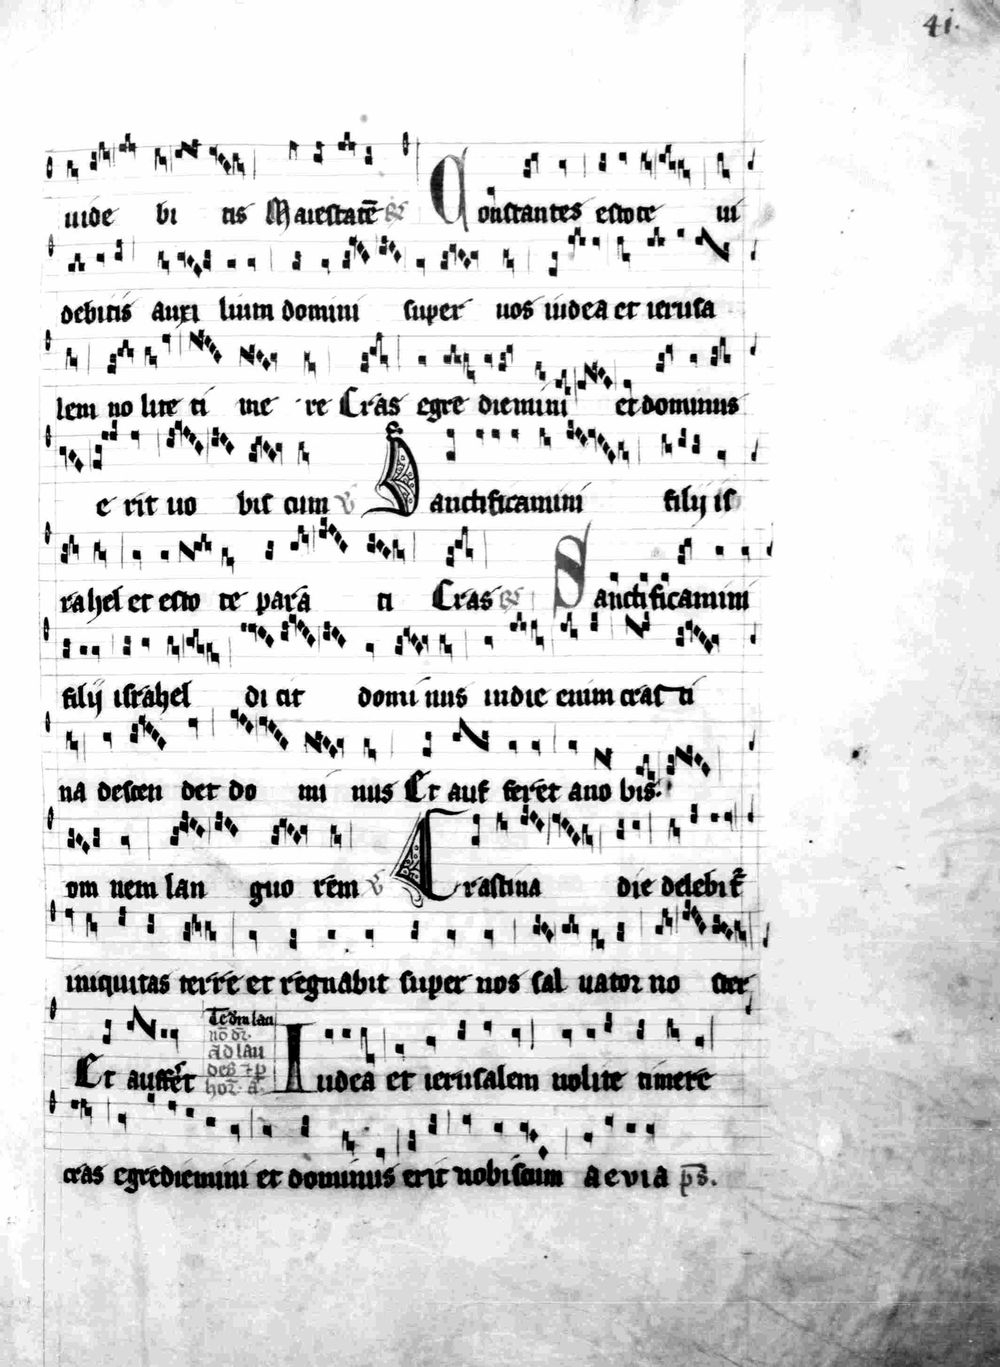 41.
uide bi tis Maiestatē
Constantes estote ui
debitis auxi lium domini super uos iudea et ierusa
lem no lite ti me re Cras egre diemini et dominus
e rit uo bis cum ℣ Sanctificamini filij is
rahel et esto te para ti Cras Sanctificamini
filij israhel di cit domi nus in die enim cras ti
na descen det do mi nus Et auf feret a uo bis
om nem lan guo rem ℣ Crastina die delebit᷑
iniquitas terre et regnabit super nos sal uator no ster
Et auffert
Te dm̄ lau
ad lau
Iudea et ierusalem nolite timere
cras egrediemini et dominus erit uobiscum aevia ps̄.